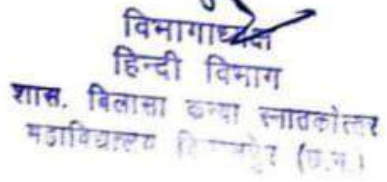 विभागाध्यक्ष
हिन्दी विभाग
शास. बिलासा कन्या स्नातकोत्तर
महाविद्यालय (छ.ग.)